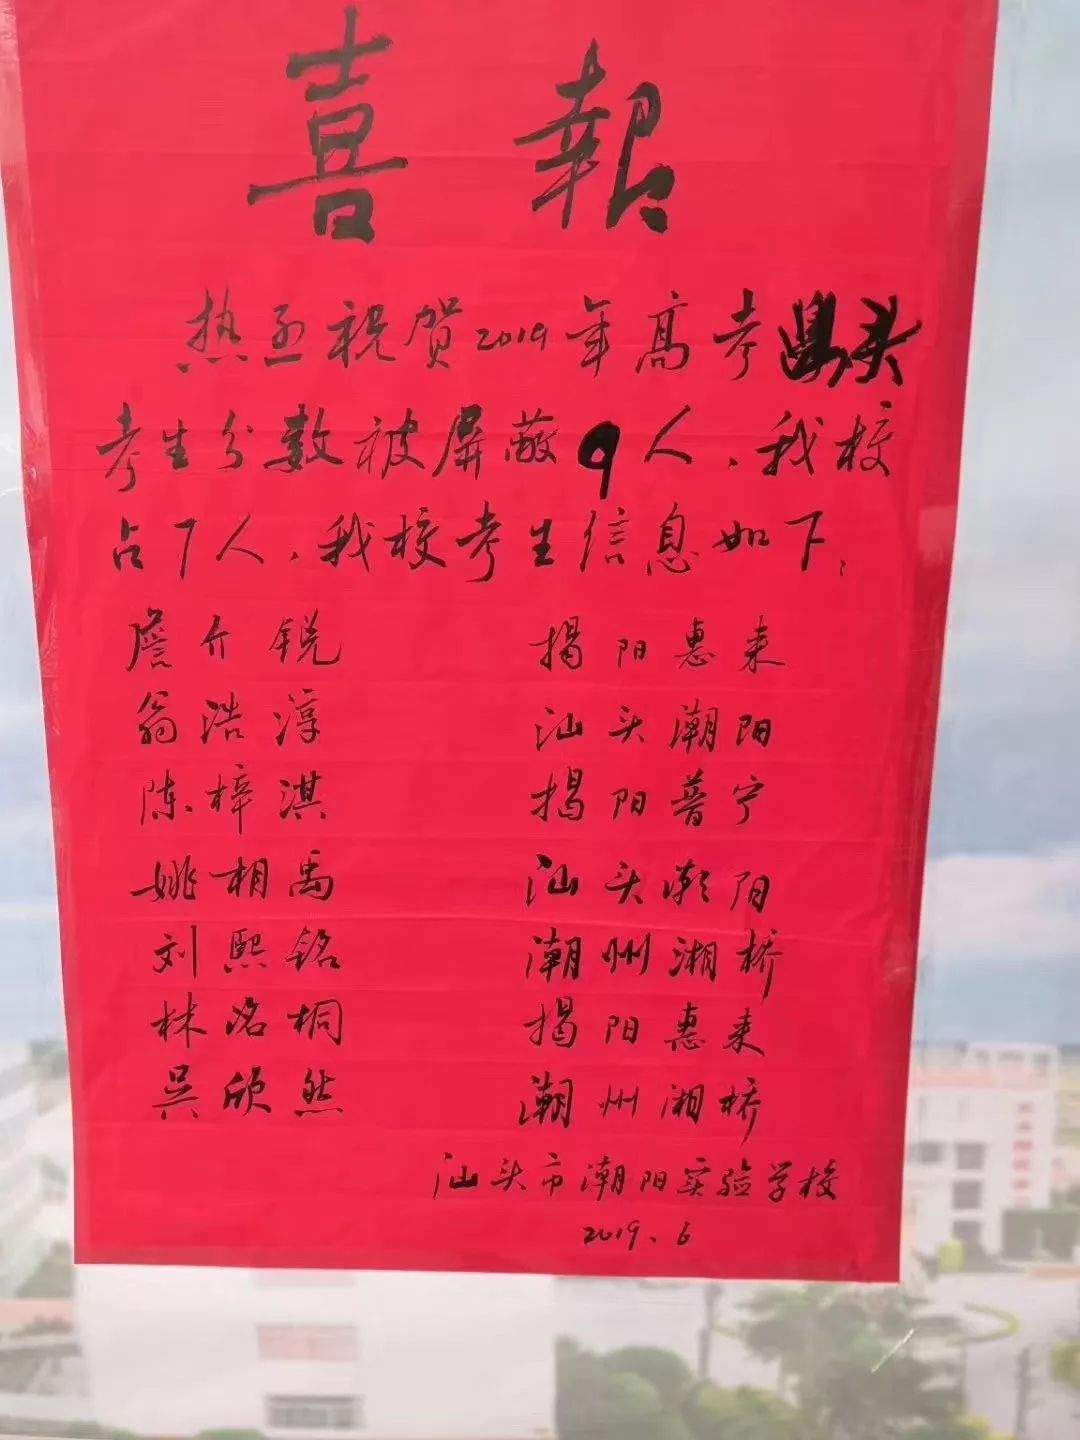 喜報
热烈祝贺2019年高考汕头
考生分数被屏蔽9人，我校
占7人，我校考生信息如下：
詹介锐 揭阳惠来
翁浩淳 汕头潮阳
陈梓淇 揭阳普宁
姚相禹 汕头潮阳
刘熙铭 潮州湘桥
林洺桐 揭阳惠来
吴欣然 潮州湘桥
汕头市潮阳实验学校
2019.6